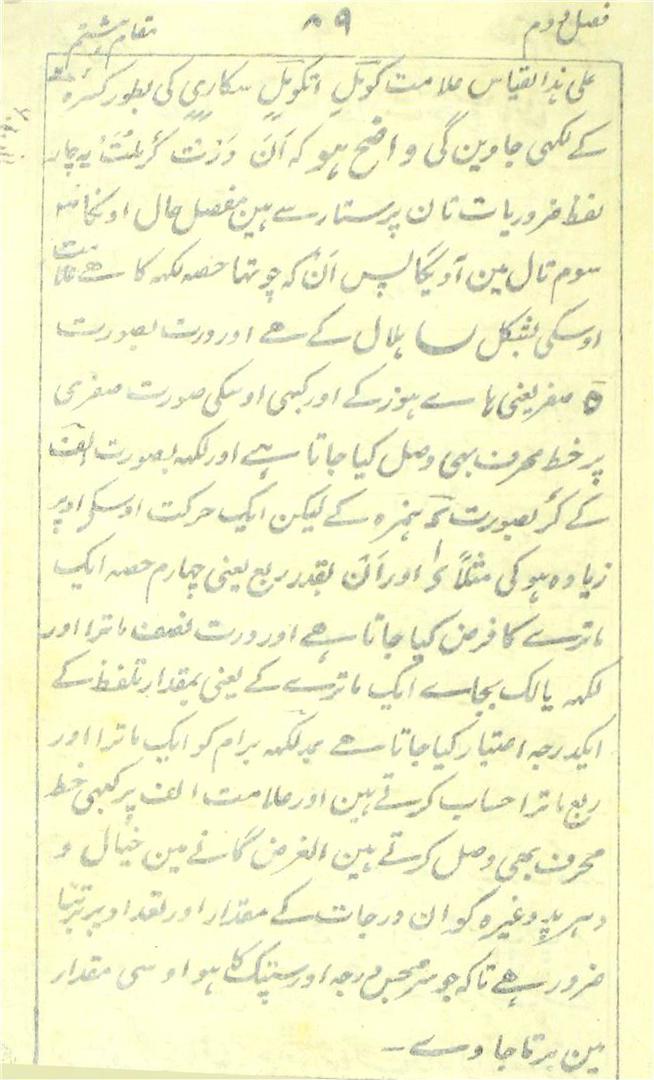 فصل دوم ۸۹ مقام ششم
علی ہذا القیاس علامت کومل اتکومل سکاری کی بطور کسرہ
کے لکہی جاوین گی واضح ہو کہ اَنَ دَرُت گُر پلُت یہ چار
لفظ ضروریات تان پرستار سے ہین مفصل حال اونکا
سوم تال مین آویگا پس اَنُ کہ چوتہا حصہ لکہہ کا ہے علامت
اوسکی بشکل ہلال کے ہے اور درت بصورت
ہ صفر یعنی ہاے ہوز کے اور کبہی اوسکی صورت صفری
پر خط محرف بہی وصل کیا جاتا ہے اور لکہہ بصورت الف
کے گر بصورت ء ہمزہ کے لیکن ایک حرکت اوسکے اوپر
زیادہ ہو کی مثلاً اور اَنُ بقدر ربع یعنی چہارم حصہ ایک
ماترے کا فرض کیا جاتا ہے اور درت نصف ماترا اور
لکہہ یا لک بجاے ایک ماترے کے یعنی بمقدار تلفظ کے
ایکدرجہ اعتبار کیا جاتا ہے لکہہ برام کو ایک ماترا اور
ربع ماترا حساب کرتے ہین اور علامت الف پر کبہی خط
محرف بہی وصل کرتے ہین الغرض گانے مین خیال و
دہرپد وغیرہ کو ان درجات کے مقدار اور تعداد پر برتنا
ضرور ہے تاکہ جو سر جس درجہ اور سپتک کا ہو اوسی مقدار
مین برتا جاوے ۔